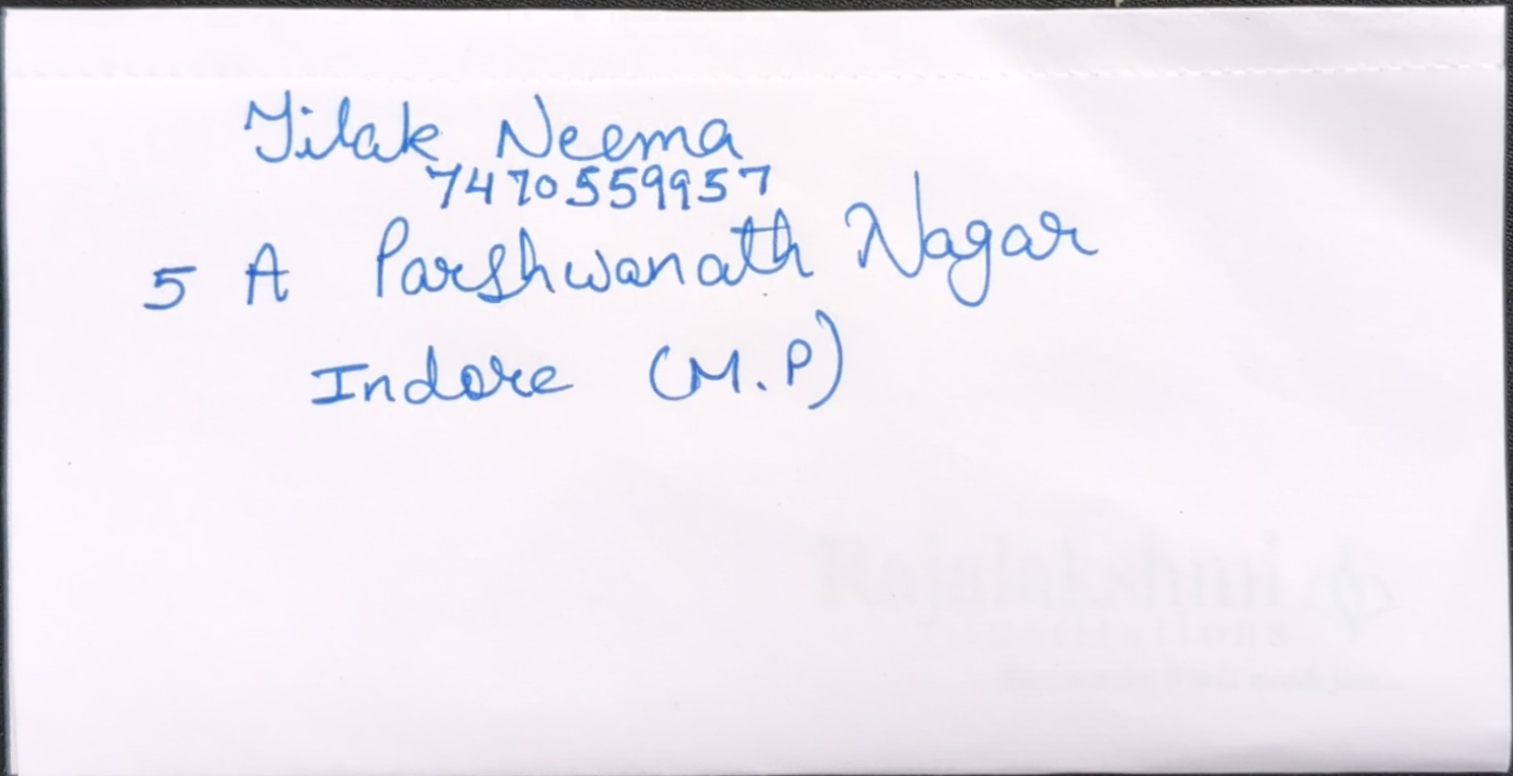 Tilak Neema
7470559957
5 A Parshwanath Nagar
Indore (M.P)
Rajalakshmi